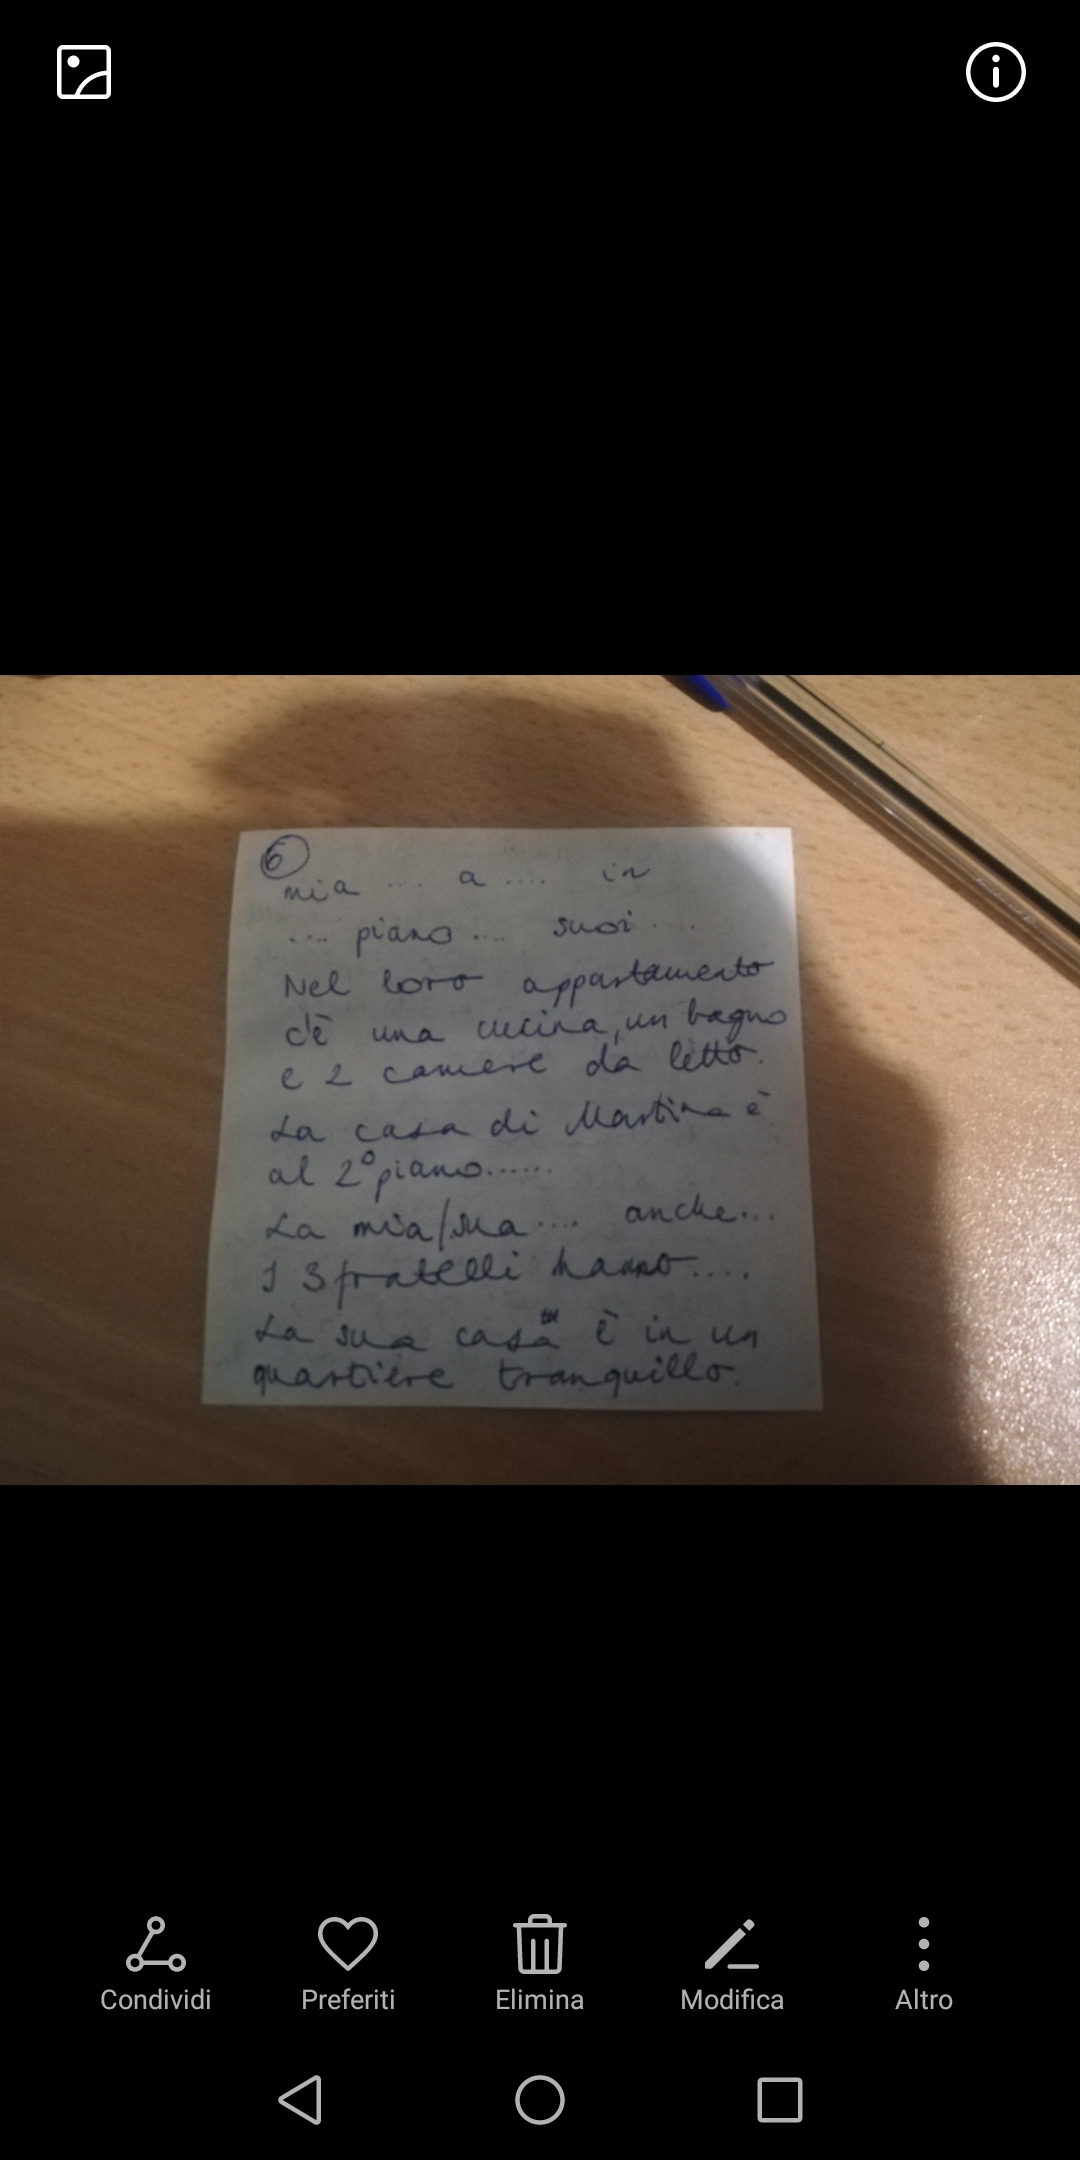 6
mia .... a .... in
.... piano .... suoi ....
Nel loro appartamento
c'è una cucina, un bagno
e 2 camere da letto.
La casa di Martina è
al 2° piano......
La mia/sua .... anche...
I 3 fratelli hanno....
La sua casa è in un
quartiere tranquillo.
Condividi
Preferiti
Elimina
Modifica
Altro